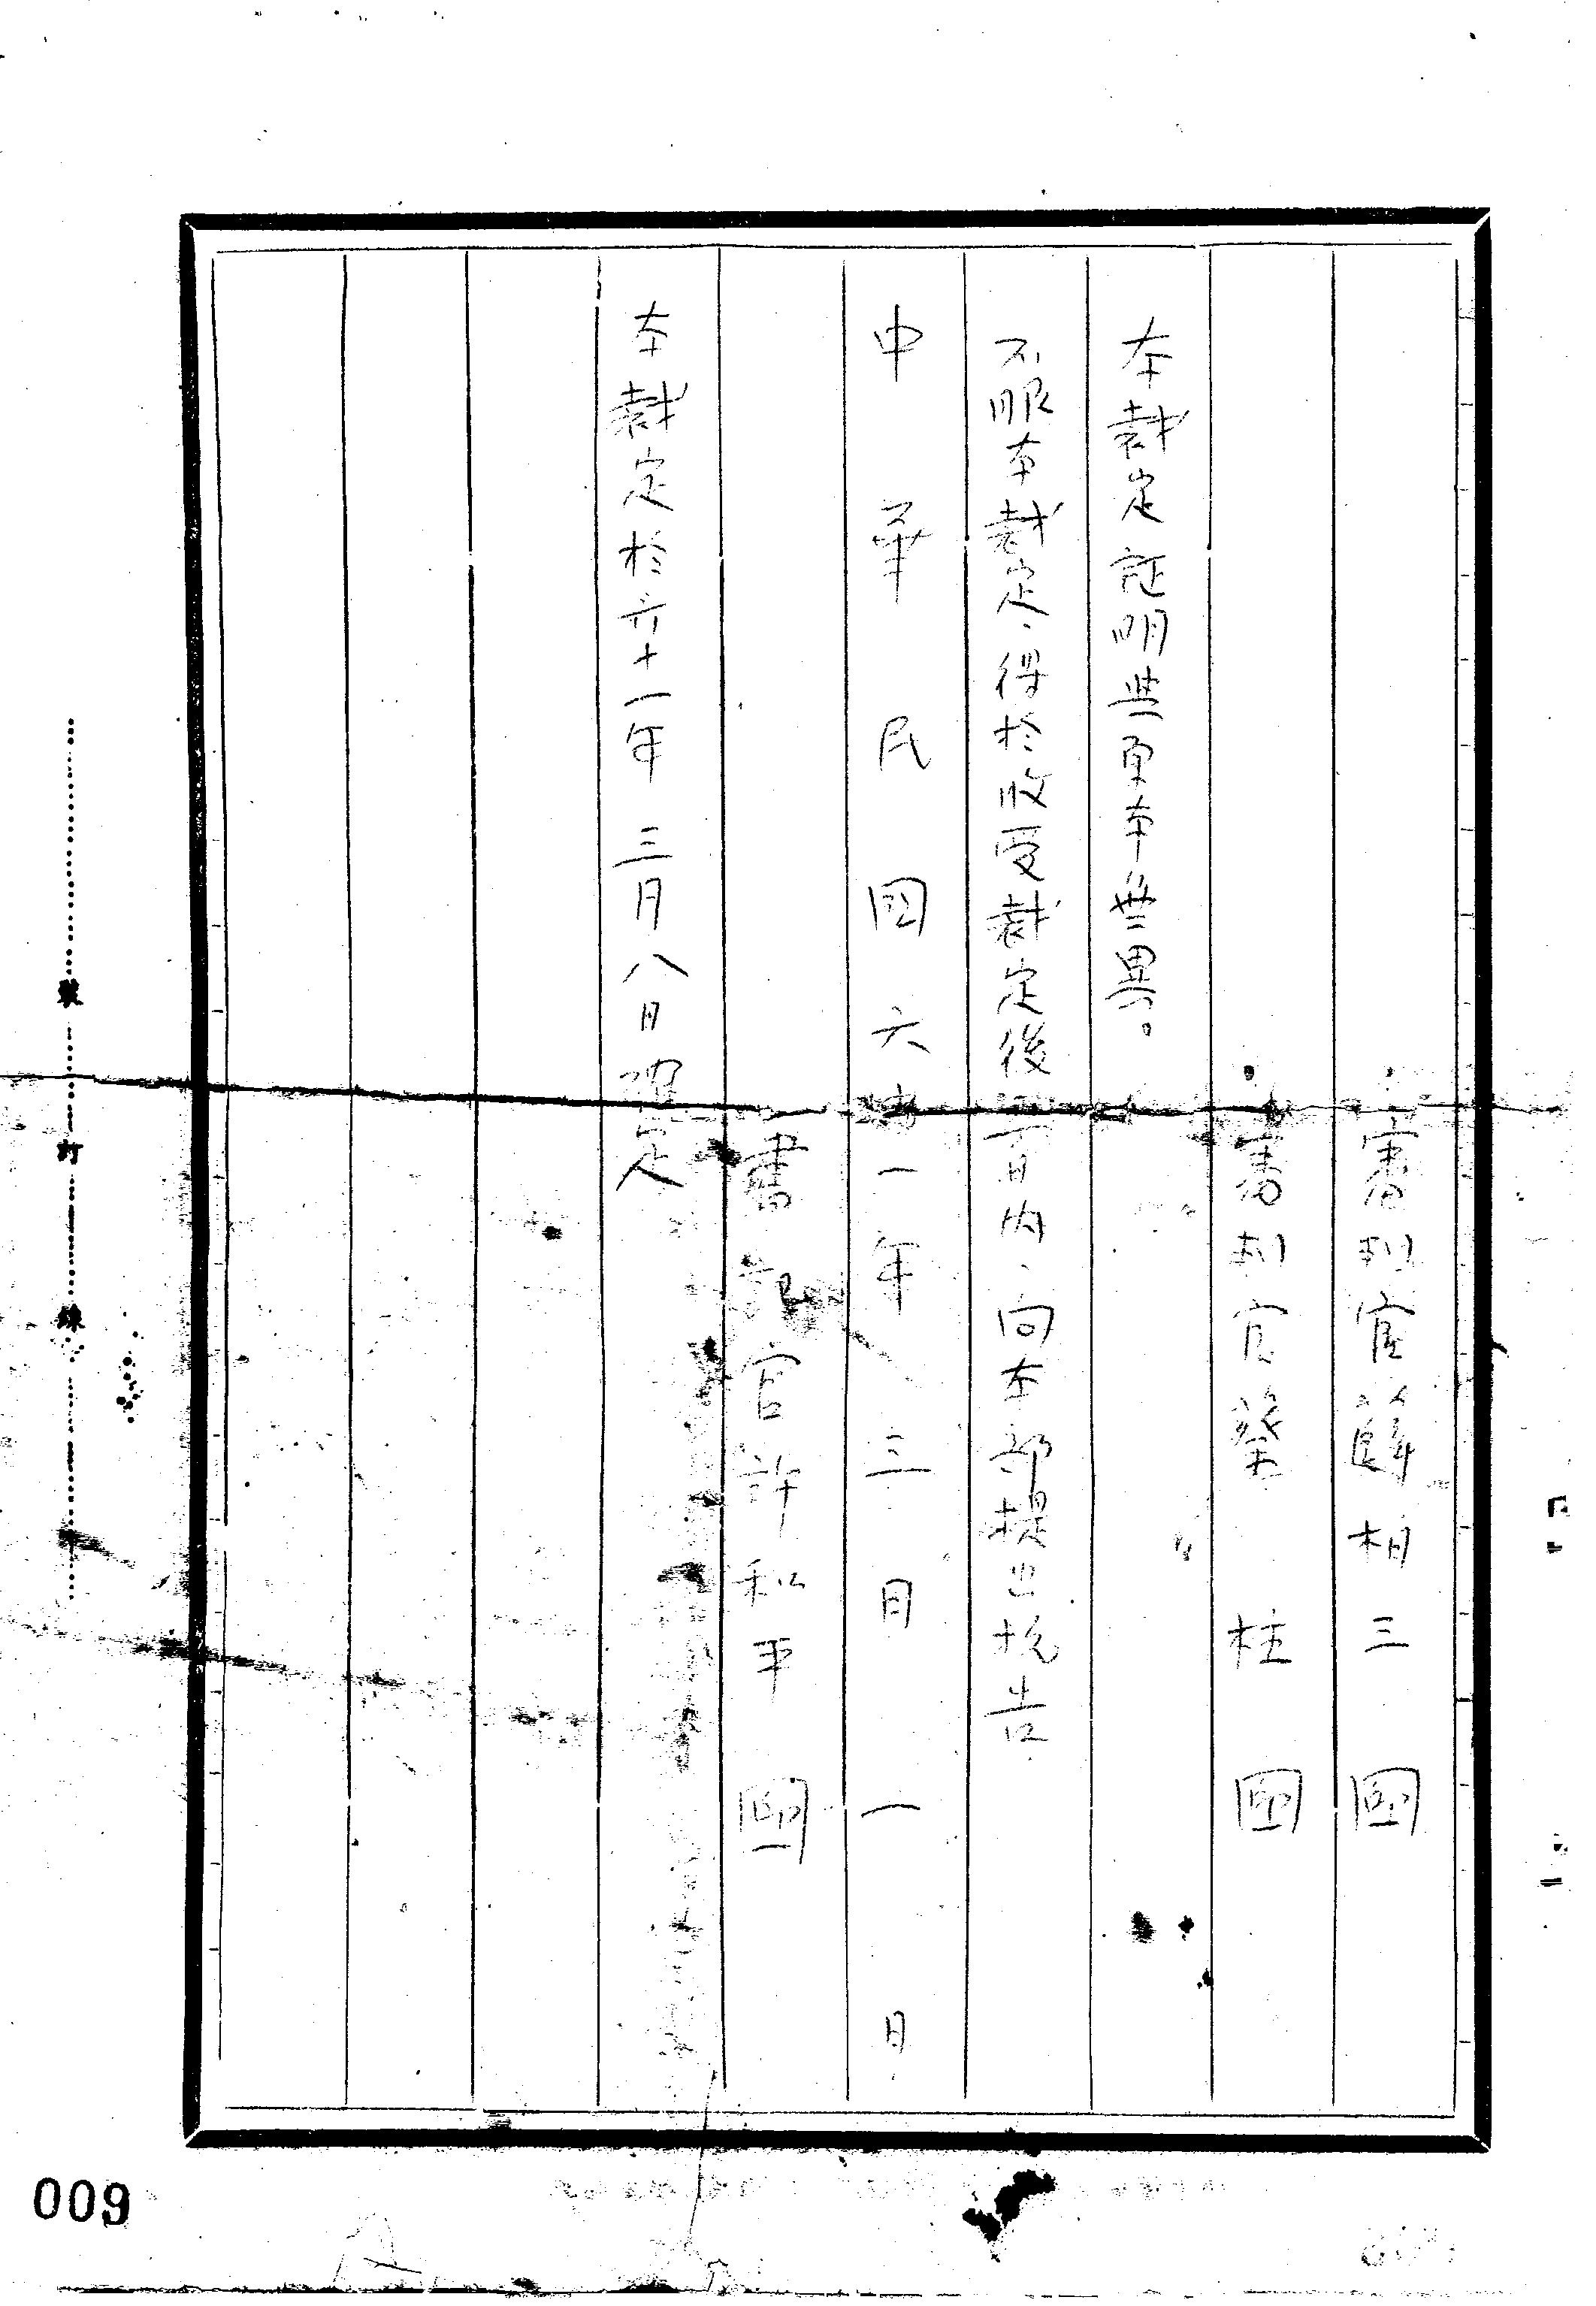 審判官薛相三 印
審判官蔡 柱 印
本裁定証明與原本無異。
不服本裁定,得於收受裁定後 日內,向本部提出抗告
中華民國六十一年三月一日
書記官許和平 印
本裁定於六十一年三月八日確定
裝
訂
線
009